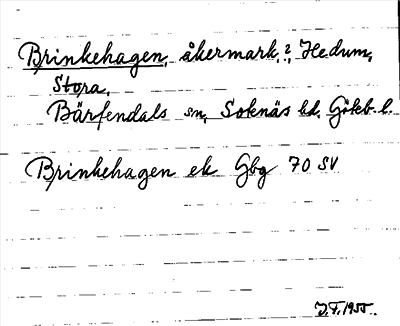 Brinkehagen, åkermark, ?, Hedum,
Stora,
Bärfendals sn, Sotenäs hd, Göteb. l.
Brinkehagen ek Gbg 70 SV
J.F. 1955.